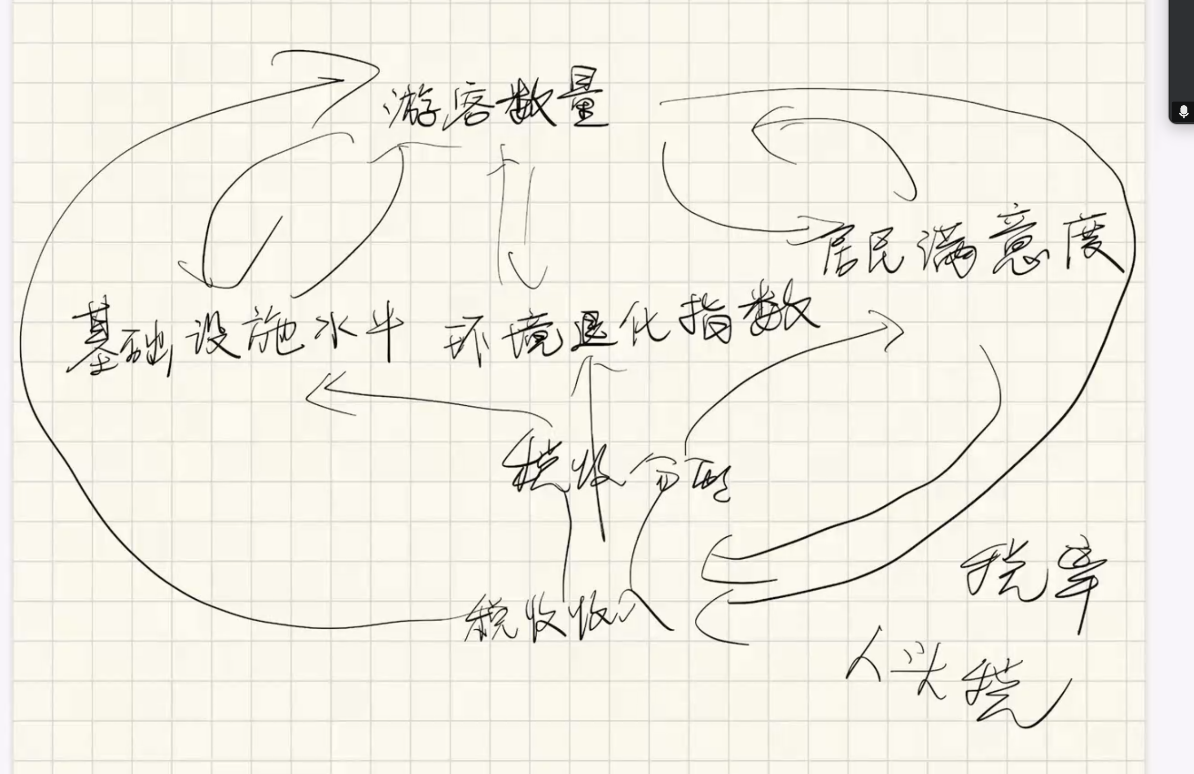 游客数量
居民满意度
基础设施水平 环境退化指数
税收分配
税收收入
税率
人头税